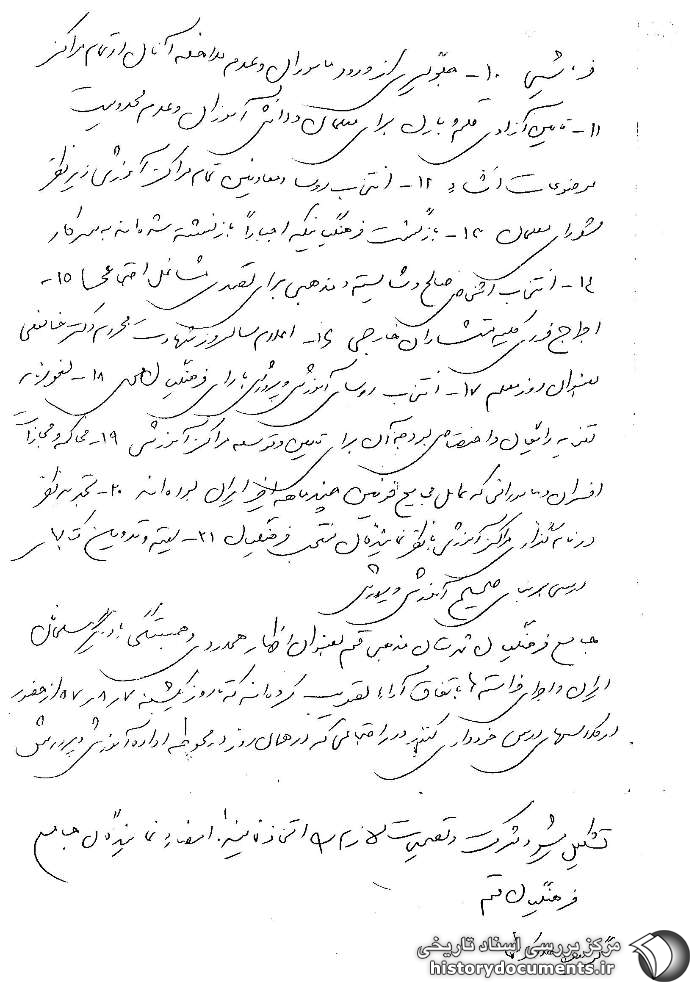 فرمایشی ۱۰- جلوگیری از ورود مامورال وعدم مداخله آنال از تمام مراکز
۱۱- تامین آزادی قلم و بیان برای معلمان و دانش آموزان وعدم محدودیت
موضوعات انشاء ۱۲- انتخاب روسا ومعاونین تمام مراکز آموزشی زیر نظر
شورای معلمان ۱۳- بازگشت فرهنگیانیکه اجباراً بازنشسته شده‌اند به سر کار
۱۴- انتخاب اشخاص صالح و شایسته و مذهبی برای تصدی مشاغل اجتماعی ۱۵-
اخراج فوری کلیه مستشاران خارجی ۱۶- اعلام سالروز شهادت مرحوم دکتر خانعلی
بعنوان روز معلم ۱۷- انتخاب روسای آموزش و پرورش با رای فرهنگیان محل ۱۸- لغو
واختصاص بودجه آن برای تامین و توسعه مراکز آموزشی ۱۹- محاکمه و مجازات
افسران و مامورانی که عامل فجایع خونین چند ماهه اخیر ایران بوده‌اند ۲۰- تجدید نظر
در نام گذاری مراکز آموزشی با نظر نمایندگان منتخب فرهنگیان ۲۱- تهیه و تدوین کتابهای
درسی بر مبنای صحیح آموزش و پرورش
جامعه فرهنگیان شهرستان مذهبی قم بعنوان اظهار همدردی و همبستگی با دیگر مسلمانان
ایران و اجرای خواسته‌ها باتفاق آراء تصویب کرده‌اند که تا روز یکشنبه ۵۷/۸/۷ از حضور
در کلاسهای درس خودداری کنند و در اجتماعی که در همان روز در محوطه اداره آموزش و پرورش
تشکیل میشود شرکت و تصمیمات لازم را اتخاذ نمایند. امضاء نمایندگان جامعه
فرهنگیان قم
مرکز بررسی اسناد تاریخی
historydocuments.ir